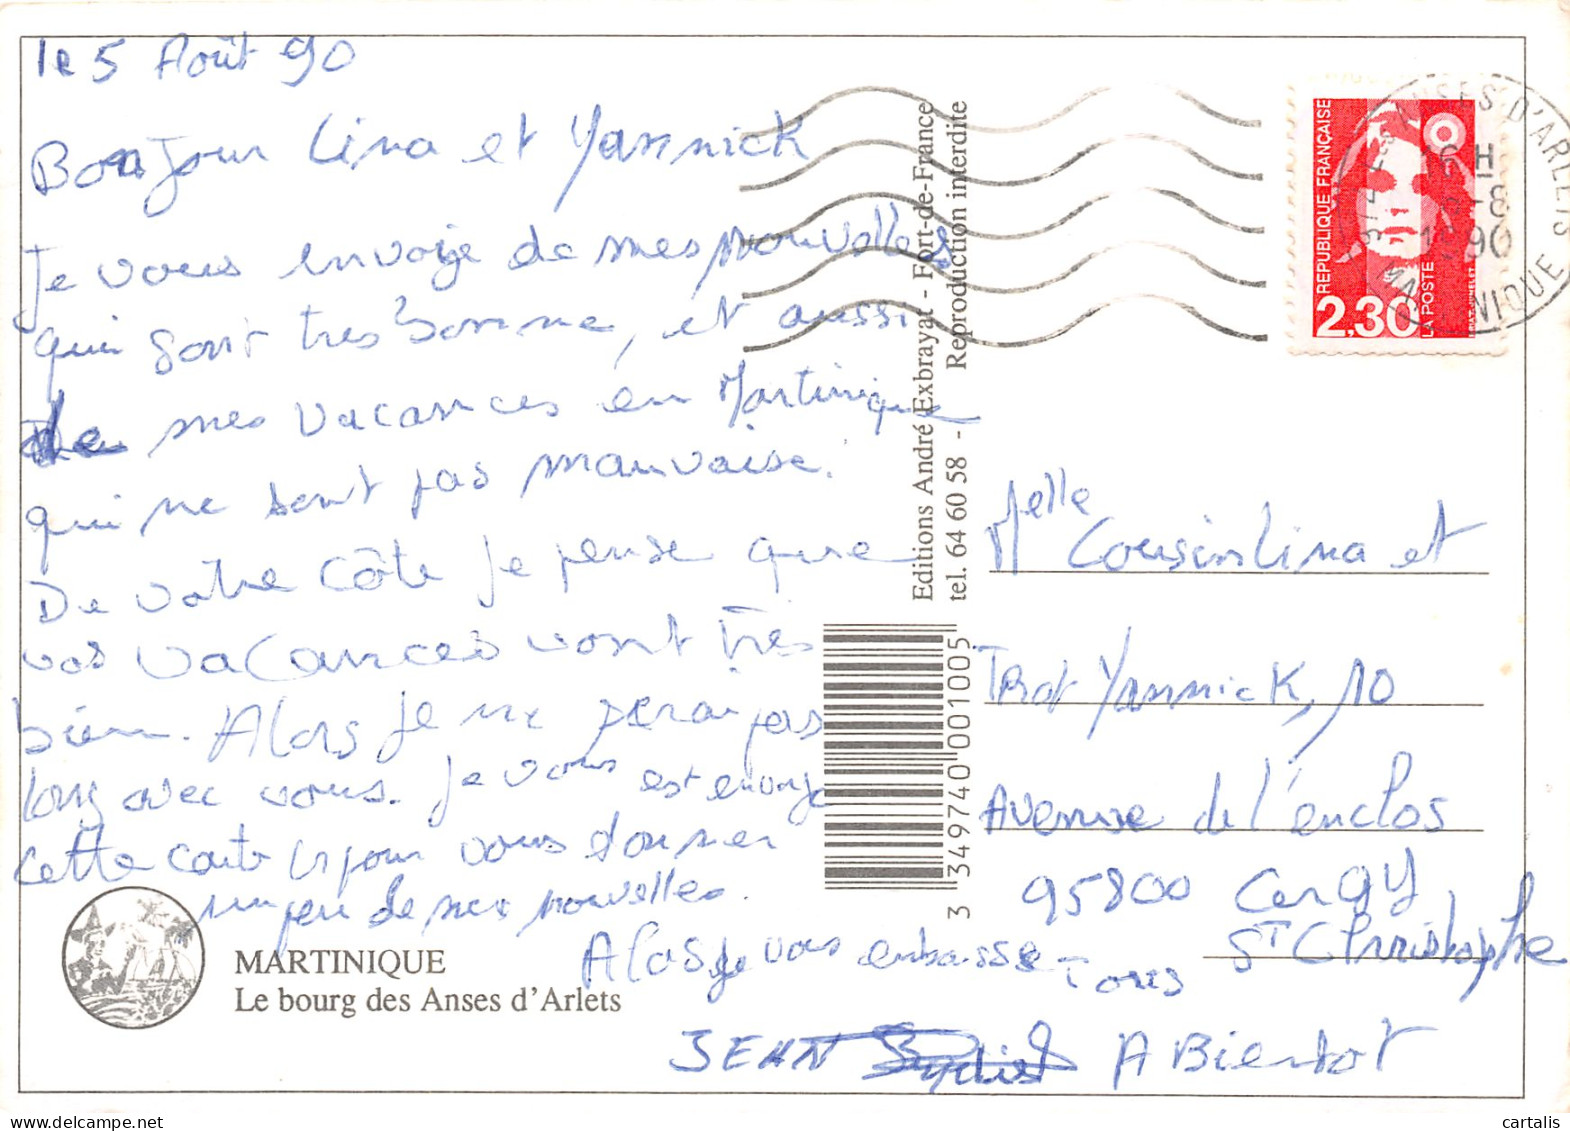 le 5 Août 90
Bonjour Lina et Yannick
Je vous envoie de mes nouvelles
qui sont très bonne, et aussi
de mes vacances en Martinique
qui ne sont pas mauvaise.
De votre côte je pense que
vos vacances vont très
bien. Alors je ne serai pas
long avec vous. Je vous est envoye
cette carte pour vous donner
un peu de mes nouvelles.
Alors je vous embasse
Tous
JEAN
A Bientot
MARTINIQUE
Le bourg des Anses d'Arlets
Editions André Exbrayat - Fort-de-France
tel. 64 60 58 - Reproduction interdite
3 349740 001005
REPUBLIQUE FRANÇAISE
2,30
LA POSTE
ANSES D'ARLETS
16 H
-8
1990
MARTINIQUE
Melle Cousin Lina et
Trot Yannick, 10
Avenue de l'enclos
95800 Cergy
St Christophe
cartalis